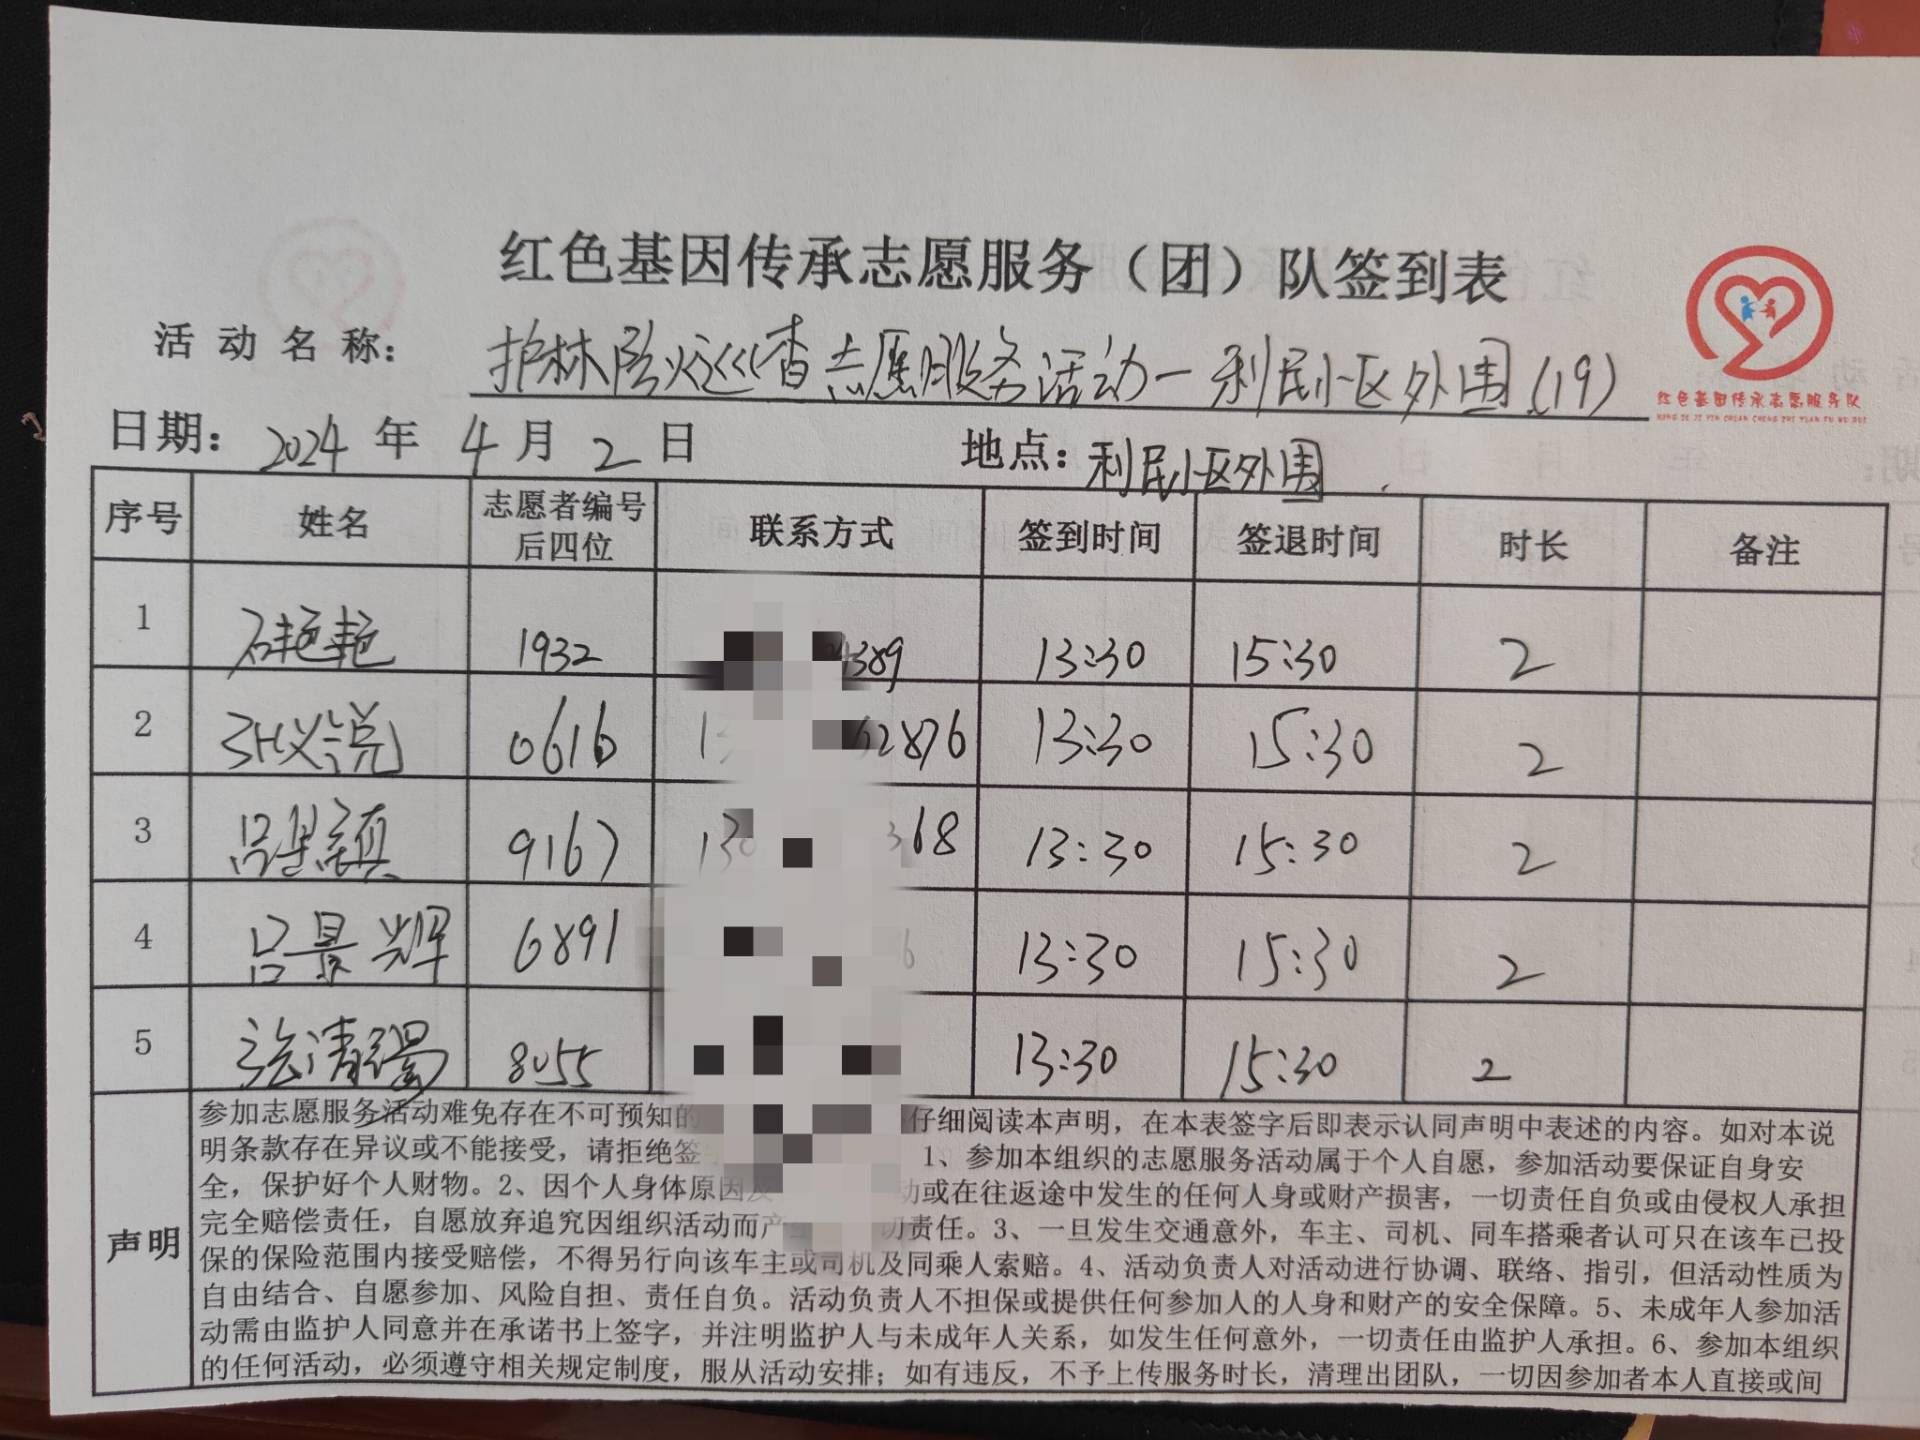 红色基因传承志愿服务（团）队签到表
活动名称： 护林防火巡查志愿服务活动-利民小区外围(19)
红色基因传承志愿服务队
HONG SE JI YIN CHUAN CHENG ZHI YUAN FU WU DUI
日期： 2024 年 4 月 2 日 地点：利民小区外围
序号 姓名 志愿者编号后四位 联系方式 签到时间 签退时间 时长 备注
1 石艳艳 1932 4389 13:30 15:30 2
2 0616 1 62876 13:30 15:30 2
3 吕 镇 9167 130 368 13:30 15:30 2
4 吕景辉 6891 6 13:30 15:30 2
5 清 8055 13:30 15:30 2
声明
参加志愿服务活动难免存在不可预知的 仔细阅读本声明，在本表签字后即表示认同声明中表述的内容。如对本说
明条款存在异议或不能接受，请拒绝签 1、参加本组织的志愿服务活动属于个人自愿，参加活动要保证自身安
全，保护好个人财物。2、因个人身体原因及 动或在往返途中发生的任何人身或财产损害，一切责任自负或由侵权人承担
完全赔偿责任，自愿放弃追究因组织活动而产 切责任。3、一旦发生交通意外，车主、司机、同车搭乘者认可只在该车已投
保的保险范围内接受赔偿，不得另行向该车主或司机及同乘人索赔。4、活动负责人对活动进行协调、联络、指引，但活动性质为
自由结合、自愿参加、风险自担、责任自负。活动负责人不担保或提供任何参加人的人身和财产的安全保障。5、未成年人参加活
动需由监护人同意并在承诺书上签字，并注明监护人与未成年人关系，如发生任何意外，一切责任由监护人承担。6、参加本组织
的任何活动，必须遵守相关规定制度，服从活动安排；如有违反，不予上传服务时长，清理出团队，一切因参加者本人直接或间